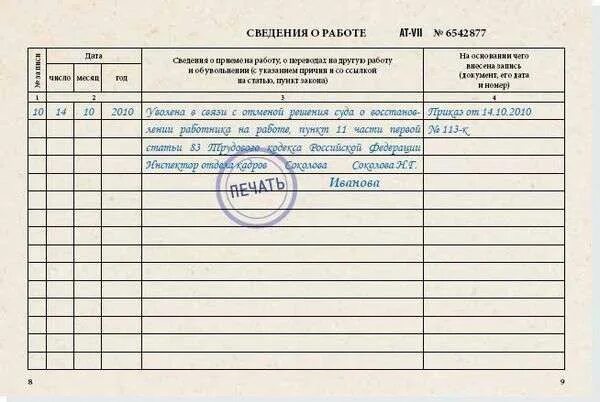 СВЕДЕНИЯ О РАБОТЕ АТ-VII № 6542877
№ записи
Дата
число месяц год
Сведения о приеме на работу, о переводах на другую работу
и об увольнении (с указанием причин и со ссылкой
на статью, пункт закона)
На основании чего
внесена запись
(документ, его дата
и номер)
1 2 3 4
10 14 10 2010 Уволена в связи с отменой решения суда о восстанов- Приказ от 14.10.2010
лении работника на работе, пункт 11 части первой № 113-к
статьи 83 Трудового кодекса Российской Федерации
Инспектор отдела кадров Соколова Соколова Н.Г.
ПЕЧАТЬ
Иванова
8 9